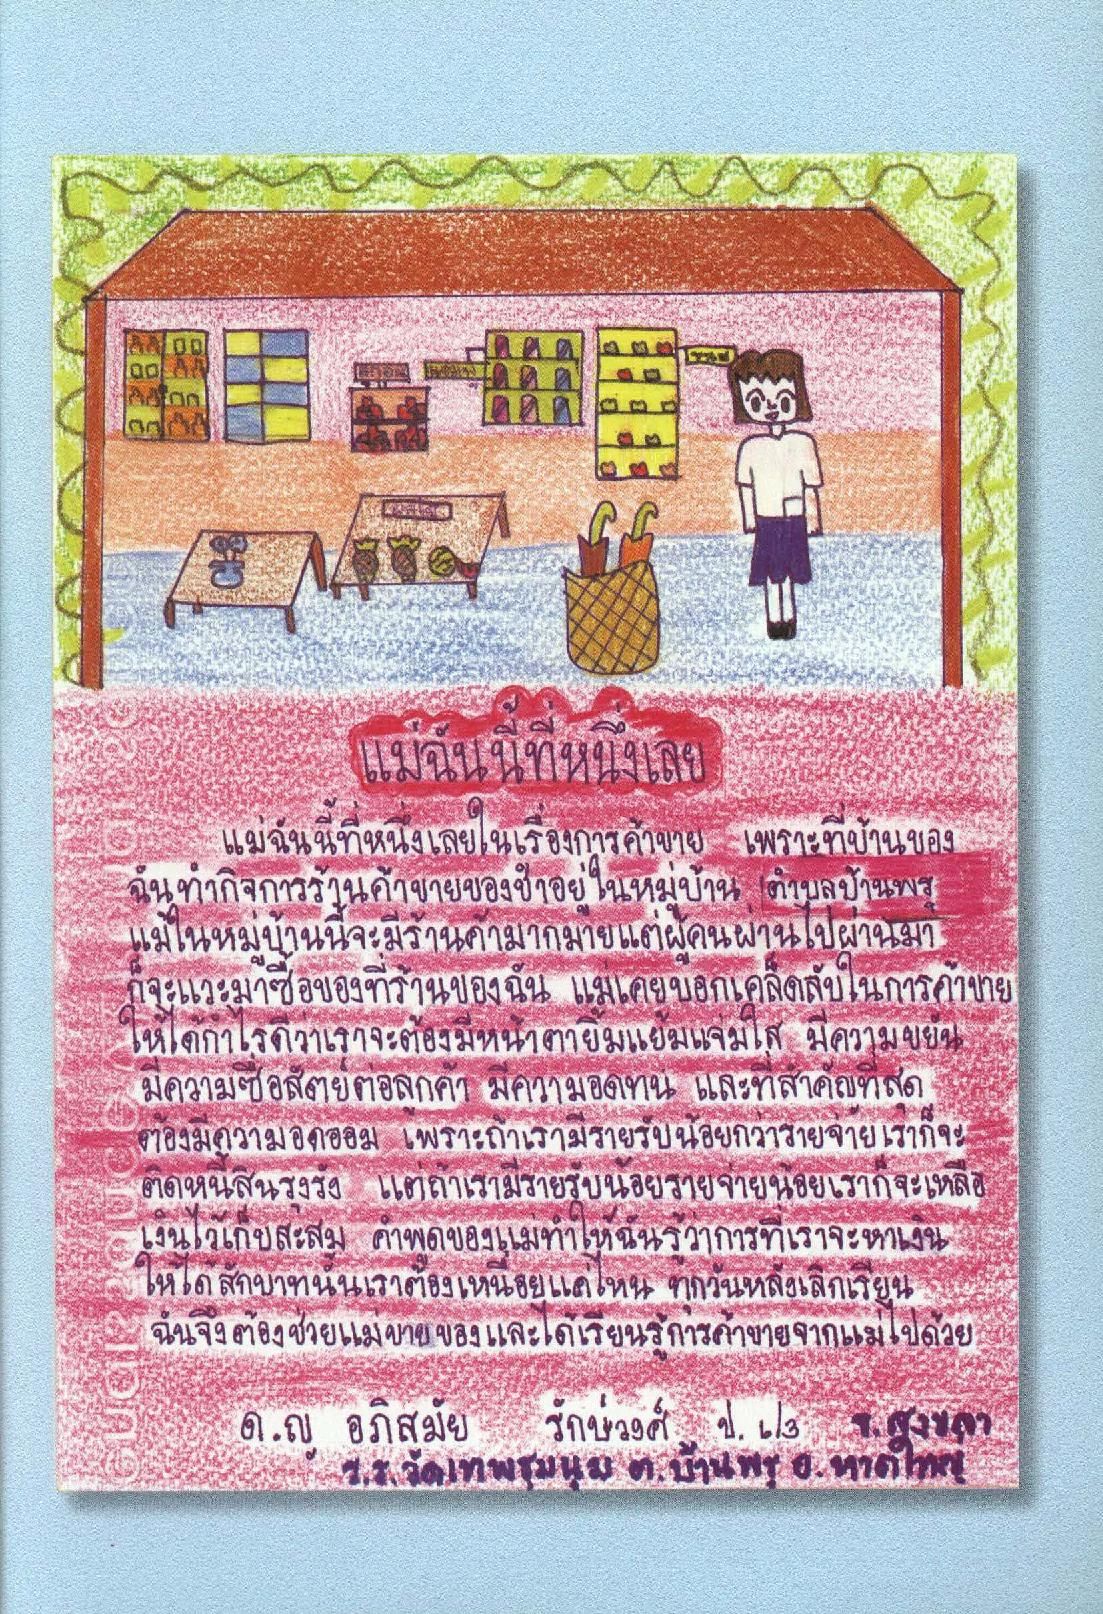 แม่ฉันนี้ที่หนึ่งเลย
แม่ฉันนี้ที่หนึ่งเลยในเรื่องการค้าขาย เพราะที่บ้านของ
ฉันทำกิจการร้านค้าขายของชำอยู่ในหมู่บ้าน ตำบลบ้านพรุ
แม้ในหมู่บ้านนี้จะมีร้านค้ามากมายแต่ผู้คนผ่านไปผ่านมา
ก็จะแวะมาซื้อของที่ร้านของฉัน แม่เคยบอกเคล็ดลับในการค้าขาย
ให้ได้กำไรดีว่าเราจะต้องมีหน้าตายิ้มแย้มแจ่มใส มีความขยัน
มีความซื่อสัตย์ต่อลูกค้า มีความอดทน และที่สำคัญที่สุด
ต้องมีความอดออม เพราะถ้าเรามีรายรับน้อยกว่ารายจ่ายเราก็จะ
ติดหนี้สินรุงรัง แต่ถ้าเรามีรายรับน้อยรายจ่ายน้อยเราก็จะเหลือ
เงินไว้เก็บสะสม คำพูดของแม่ทำให้ฉันรู้ว่าการที่เราจะหาเงิน
ให้ได้สักบาทนั้นเราต้องเหนื่อยแค่ไหน ทุกวันหลังเลิกเรียน
ฉันจึงต้องช่วยแม่ขายของและได้เรียนรู้การค้าขายจากแม่ไปด้วย
ด.ญ อภิสมัย รักษ์วงศ์ ป. ๖/๓ จ.สงขลา
ร.ร.วัดเทพชุมนุม ต.บ้านพรุ อ.หาดใหญ่